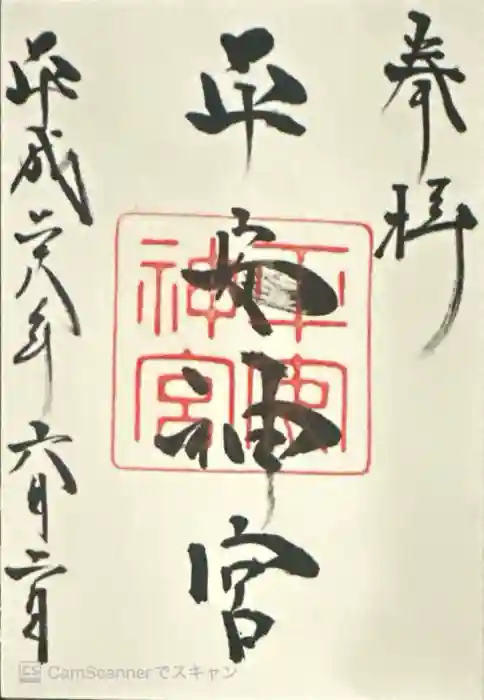 奉拝
平安神宮
平安神宮
平成二八年六月二日
CS CamScannerでスキャン